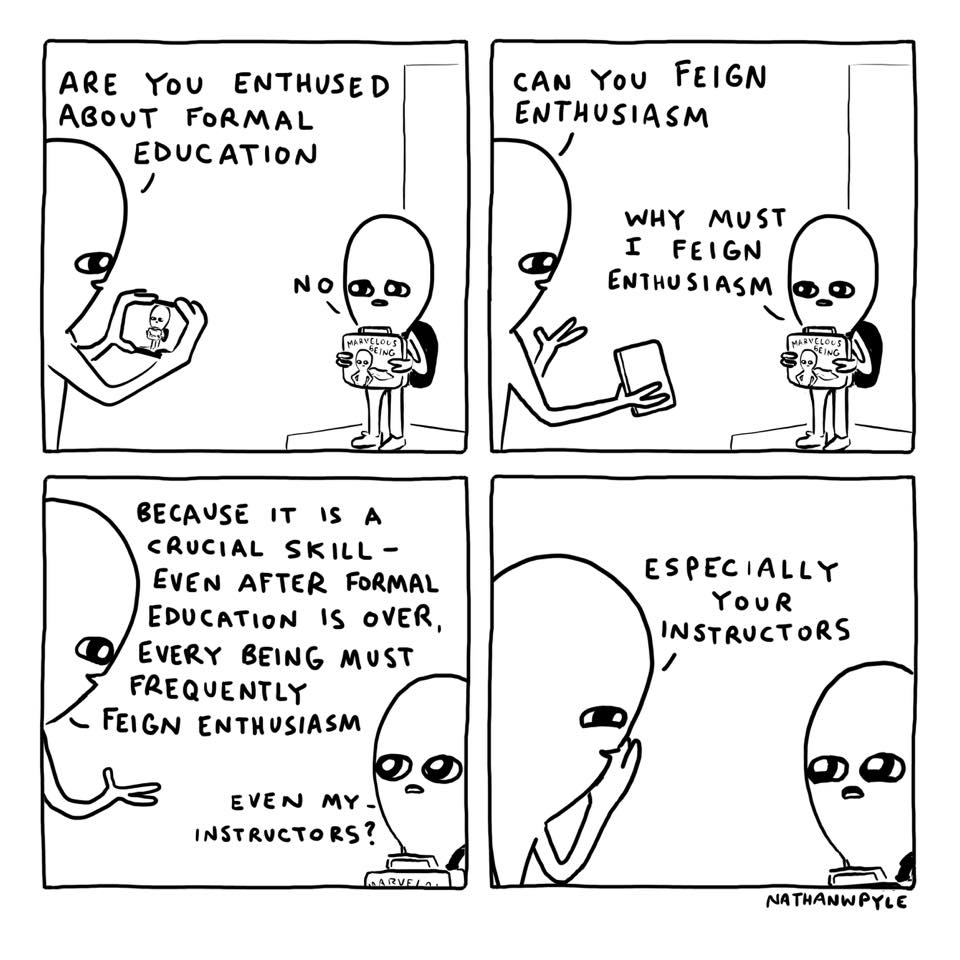 ARE YOU ENTHUSED
ABOUT FORMAL
EDUCATION
NO
MARVELOUS
BEING
CAN YOU FEIGN
ENTHUSIASM
WHY MUST
I FEIGN
ENTHUSIASM
MARVELOUS
BEING
BECAUSE IT IS A
CRUCIAL SKILL-
EVEN AFTER FORMAL
EDUCATION IS OVER,
EVERY BEING MUST
FREQUENTLY
FEIGN ENTHUSIASM
EVEN MY
INSTRUCTORS?
MARVELO
ESPECIALLY
YOUR
INSTRUCTORS
NATHANWPYLE